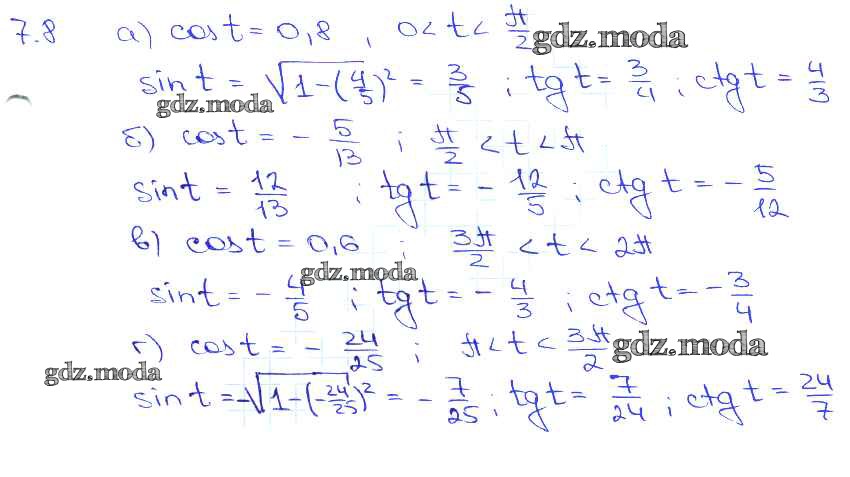 7.8 а) cos t = 0,8 , 0 < t < π/2 gdz.moda
sin t = √(1-(4/5)²) = 3/5 ; tg t = 3/4 ; ctg t = 4/3
gdz.moda
б) cos t = - 5/13 ; π/2 < t < π
sin t = 12/13 ; tg t = - 12/5 ; ctg t = - 5/12
в) cos t = 0,6 ; 3π/2 < t < 2π
gdz.moda
sin t = - 4/5 ; tg t = - 4/3 ; ctg t = - 3/4
г) cos t = - 24/25 ; π < t < 3π/2 gdz.moda
gdz.moda
sin t = -√(1-(-24/25)²) = - 7/25 ; tg t = 7/24 ; ctg t = 24/7